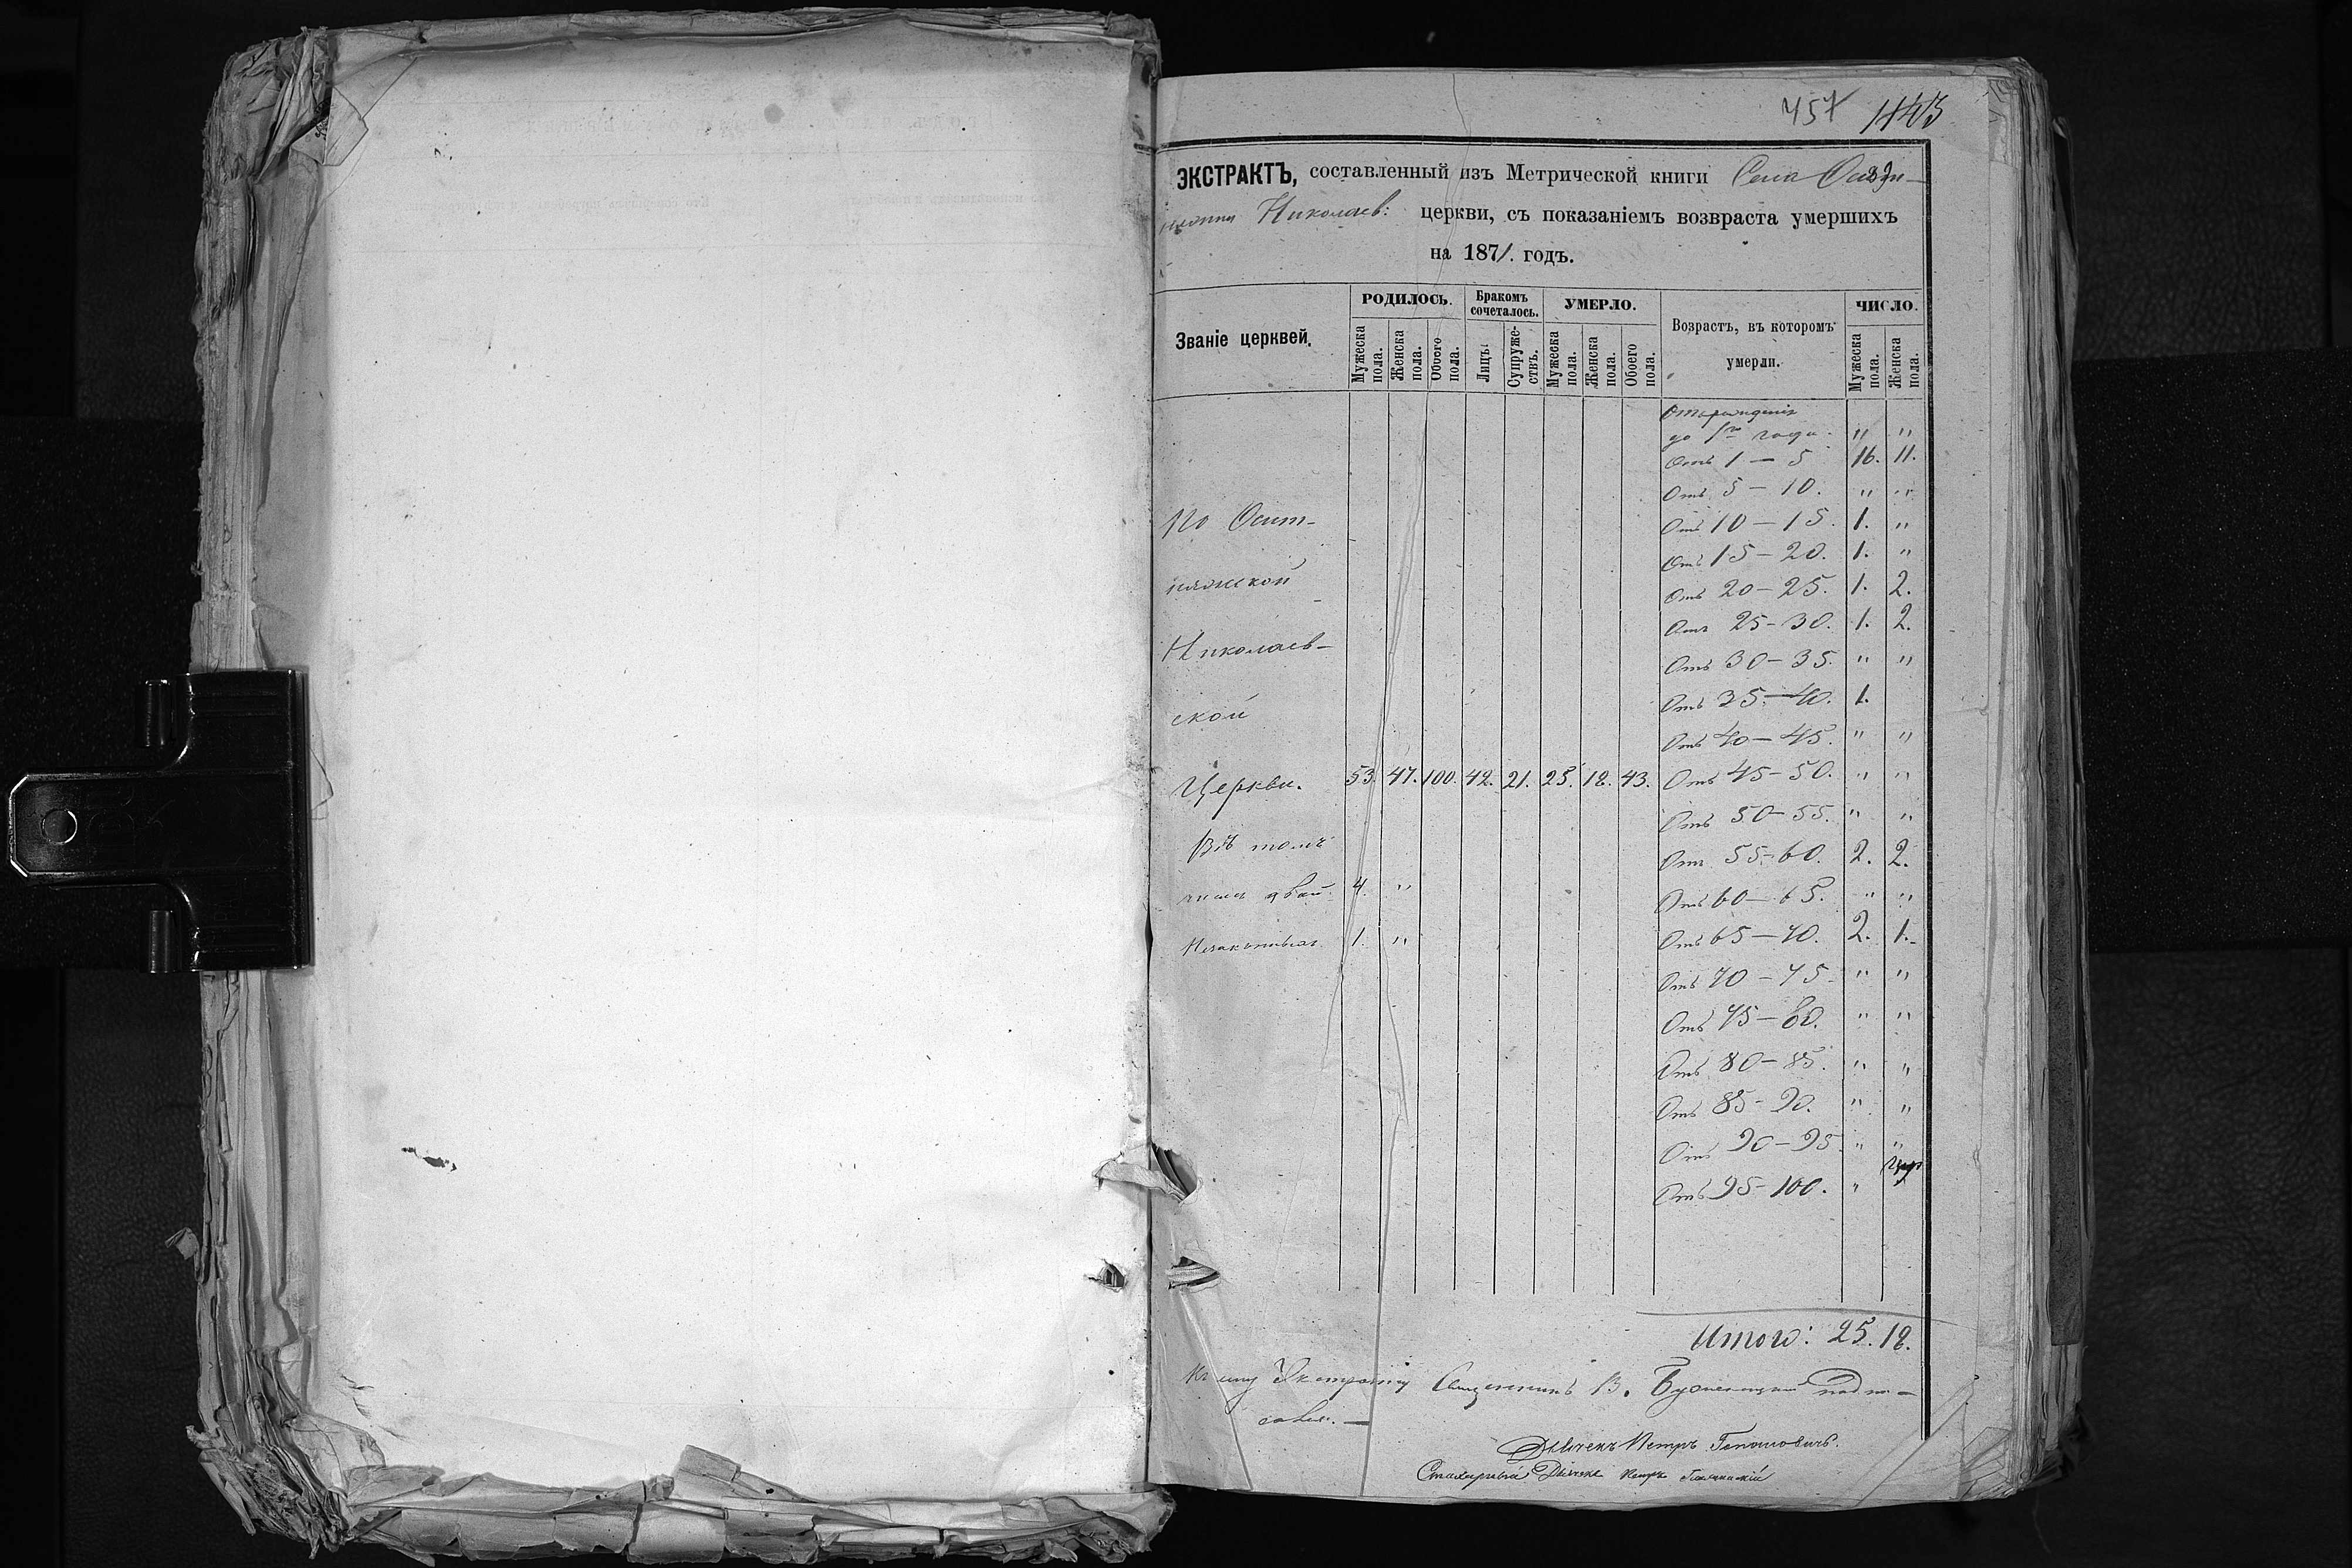 457 1143
ЭКСТРАКТЪ, составленный изъ Метрической книги Села
Николаев: церкви, съ показаніемъ возвраста умершихъ
на 1871. годъ.
Званіе церквей.
РОДИЛОСЬ.
Мужеска пола.
Женска пола.
Обоего пола.
Бракомъ сочеталось.
Лицъ.
Супруже-ствъ.
УМЕРЛО.
Мужеска пола.
Женска пола.
Обоего пола.
Возрастъ, въ которомъ
умерли.
ЧИСЛО.
Мужеска пола.
Женска пола.
Отъ рожденія
до 1го года. " "
Отъ 1 — 5 16. 11.
Отъ 5 — 10. " "
По Осит-
Отъ 10 — 15. 1. "
Отъ 15 — 20. 1. "
няжской
Отъ 20 — 25. 1. 2.
Отъ 25 - 30. 1. 2.
Николаев-
Отъ 30 — 35. " "
Отъ 35 — 40. 1.
ской
Отъ 40 — 45. " "
Церкви. 53. 47. 100. 42. 21. 25. 18. 43. Отъ 45 - 50. " "
Отъ 50 - 55. " "
Въ томъ
Отъ 55 - 60. 2. 2.
числѣ двой. 4. "
Отъ 60 — 65. " "
Незаконныхъ 1. "
Отъ 65 — 70. 2. 1.
Отъ 70 — 75. " "
Отъ 75 — 80. " "
Отъ 80 — 85. " "
Отъ 85 - 90. " "
Отъ 90 — 95. " "
Отъ 95 - 100. "
Итого: 25. 18.
Къ сему Экстракту Священникъ В. подпи-
сался. —
Дьячекъ Петръ
Дьячекъ Петръ